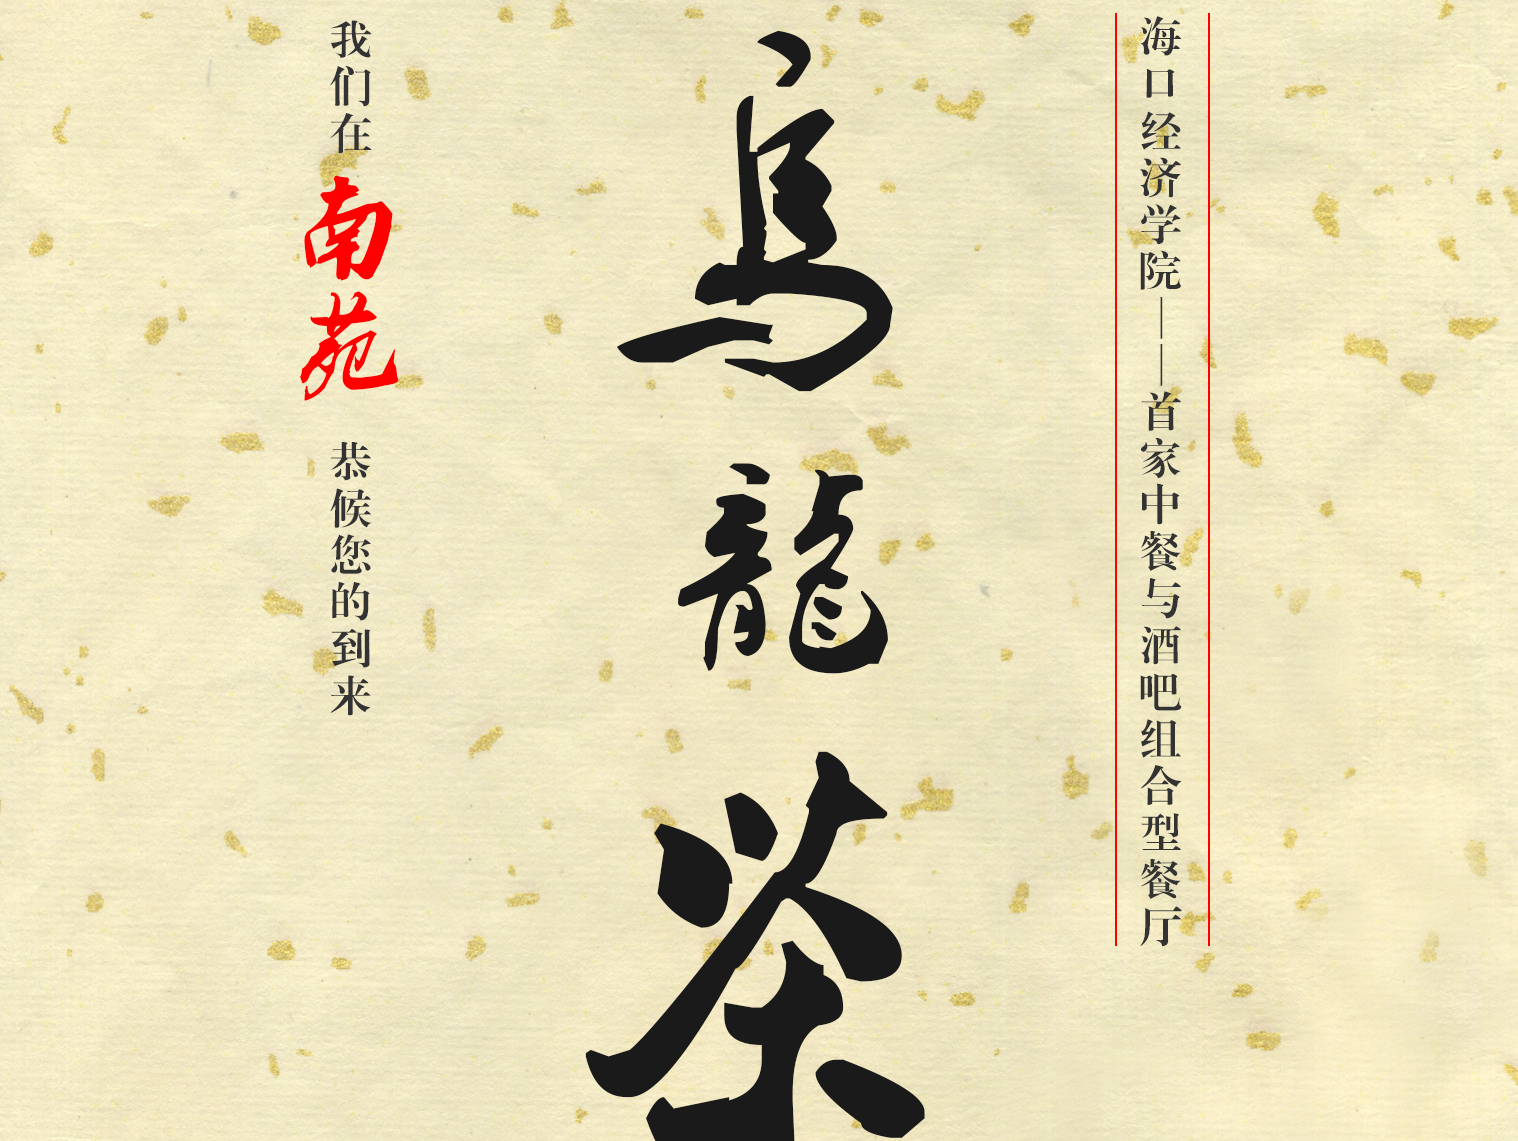 海口经济学院——首家中餐与酒吧组合型餐厅
乌龍茶
我们在南苑恭候您的到来